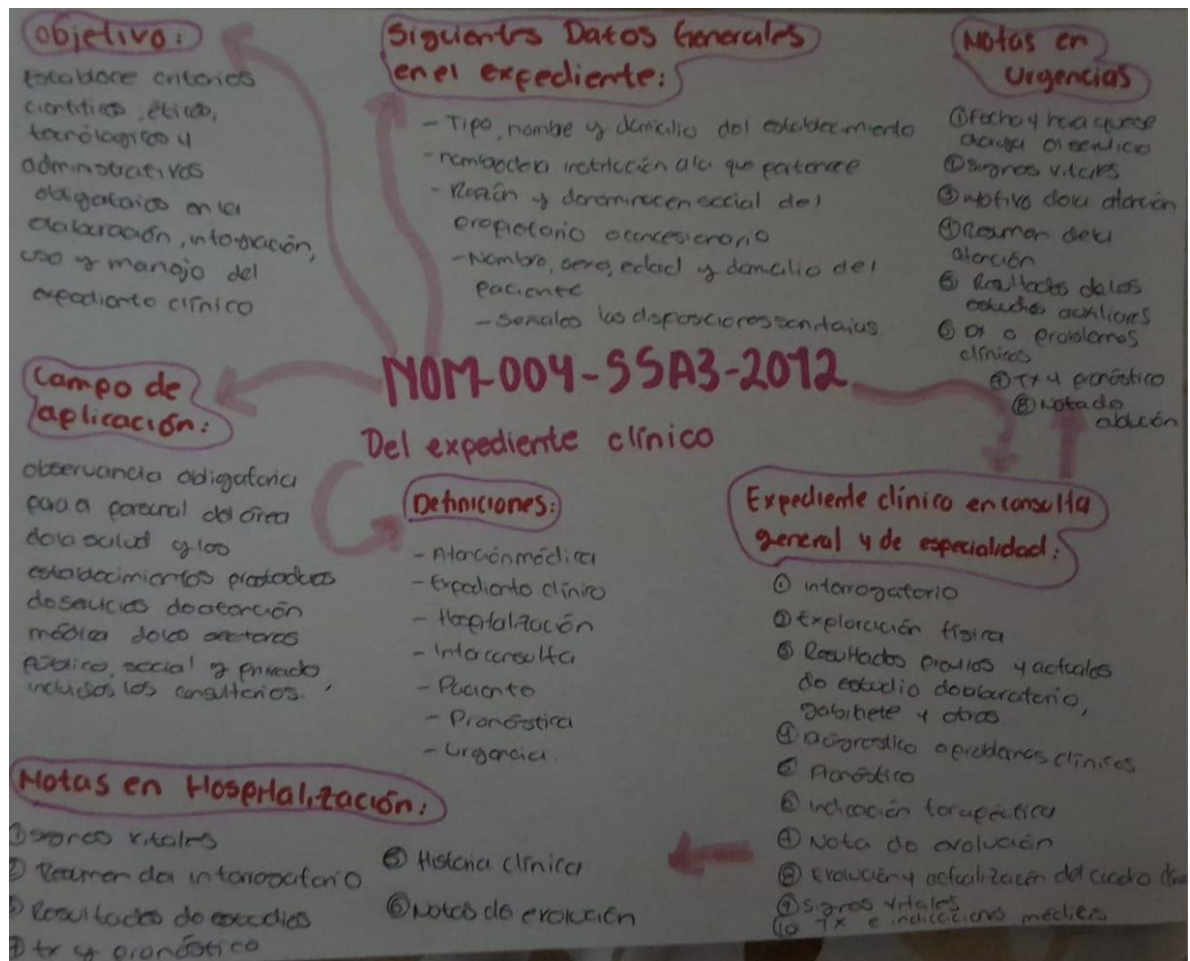 Objetivo:
Establece criterios
científicos, éticos,
tecnólogicos y
administrativos
obligatorios en la
elaboración, integración,
uso y manejo del
expediente clínico
Siguientes Datos Generales
en el expediente:
- Tipo, nombre y domicilio del establecimiento
- nombre de la institución a la que pertenece
- Razón y denominacen social del
propietario o concesionario
- Nombre, sexo, edad y domicilio del
paciente
- Señales las disposiciones sanitarias.
Notas en
Urgencias
① Fecha y hora que se
el servicio
② signos vitales
③ motivo de la atención
④ Resumen de la
atención
⑤ Resultados de los
estudios auxiliares
⑥ Dx o problemas
clínicos
⑦ Tx y pronóstico
⑧ Nota de
NOM-004-SSA3-2012
Del expediente clínico
Campo de
aplicación:
observancia obligatoria
para personal del área
de la salud y los
establecimientos prestadores
de servicios de atención
médica de los sectores
público, social y privado,
incluidos los consultorios.
Definiciones:
- Atención médica
- Expediente clínico
- Hospitalización
- Interconsulta
- Paciente
- Pronóstica
- Urgencia.
Expediente clínico en consulta
general y de especialidad:
① interrogatorio
② Exploración física
③ Resultados previos y actuales
de estudio de laboratorio,
gabinete y otros
④ diagnostico o problemas clínicos
⑤ Pronóstico
⑥ indicación terapéutica
⑦ Nota de evolución
⑧ Evolución y actualización del cuadro
⑨ Signos vitales
⑩ Tx e indicaciones médicas
Notas en Hospitalización:
① signos vitales
② Resumen del interrogatorio
③ Resultados de estudios
④ tx y pronóstico
⑤ Historia clínica
⑥ Notas de evolución